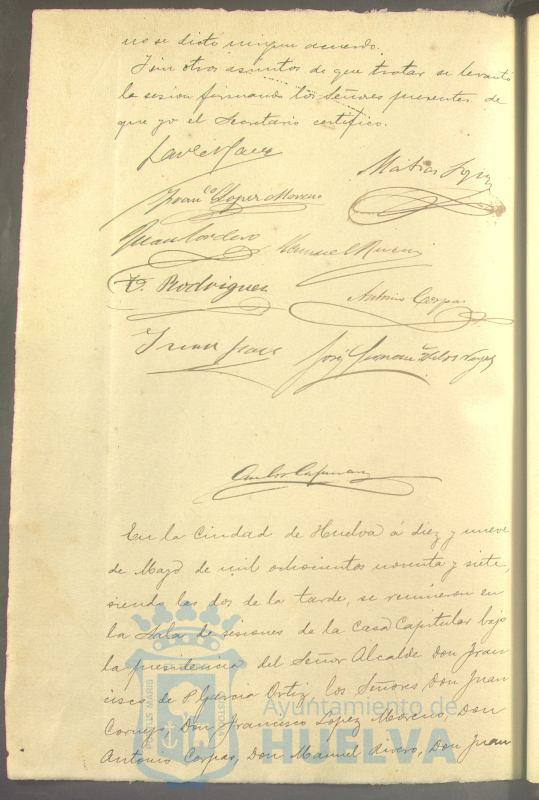 no se dictó ningun acuerdo.
Y sin otros asuntos de que tratar se levantó
la sesion firmando los Señores presentes de
que yo el Secretario certifico.
Matias
Franco Lopez Moreno
Juan Cordero Manuel
Rodriguez
Antonio Corpas
Juan José
Carlos
En la Ciudad de Huelva á diez y nueve
de Mayo de mil ochocientos noventa y siete,
siendo las dos de la tarde, se reunieron en
la Sala de sesiones de la Casa Capitular bajo
la presidencia del Señor Alcalde Don Fran
cisco de P. Garcia Ortiz, los Señores, Don Juan
Cornejo, Don Francisco Lopez Moreno, Don
Antonio Corpas, Don Manuel Rivero, Don Juan
PORTUS MARIS
Ayuntamiento de
HUELVA